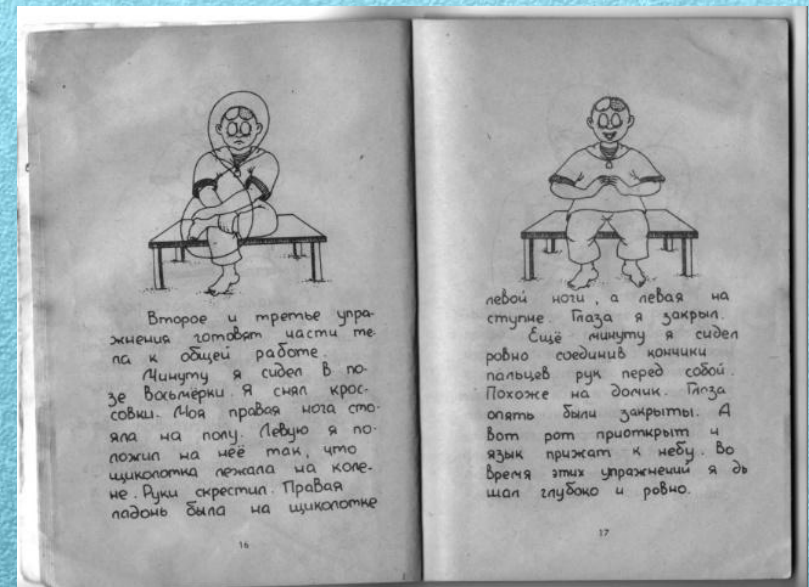 Второе и третье упра-
жнения готовят части те-
ла к общей работе.
Минуту я сидел в по-
зе Восьмёрки. Я снял крос-
совки. Моя правая нога сто-
яла на полу. Левую я по-
ложил на неё так, что
щиколотка лежала на коле-
не. Руки скрестил. Правая
ладонь была на щиколотке
16
левой ноги, а левая на
ступне. Глаза я закрыл.
Ещё минуту я сидел
ровно соединив кончики
пальцев рук перед собой.
Похоже на домик. Глаза
опять были закрыты. А
вот рот приоткрыт и
язык прижат к небу. Во
время этих упражнений я ды
шал глубоко и ровно.
17